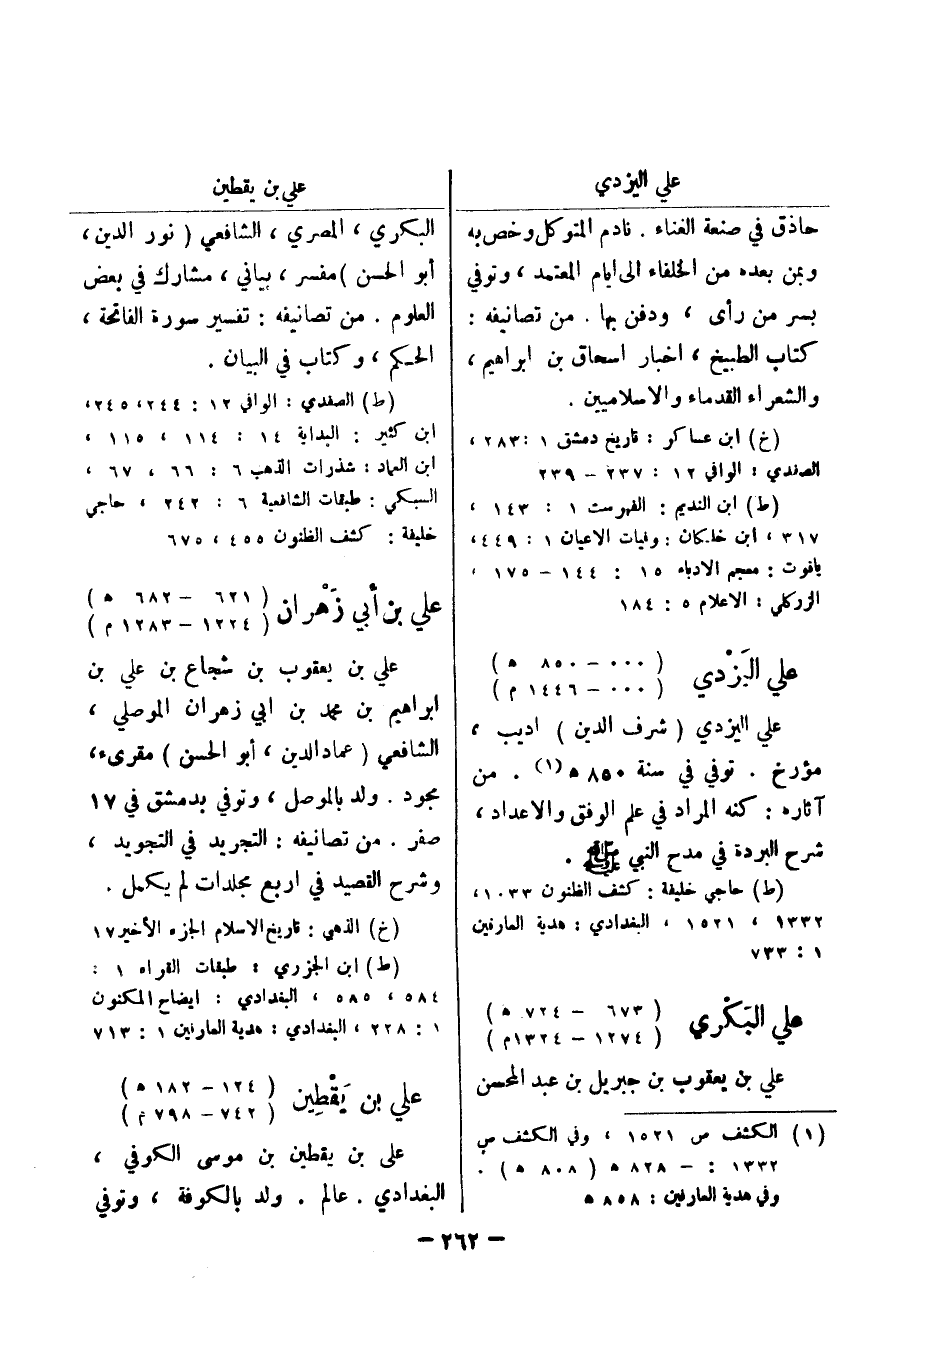 علي اليزدي
حاذق في صنعة الغناء . نادم المتوكل وخص به
وبمن بعده من الخلفاء الى ايام المعتمد ، وتوفي
بسر من رأى ، ودفن بها . من تصانيفه :
كتاب الطبيخ ، اخبار اسحاق بن ابراهيم ،
والشعراء القدماء والاسلاميين .
(خ) ابن عساكر : تاريخ دمشق ١ : ٢٨٣ ،
الصفدي : الوافي ١٢ : ٢٣٧ – ٢٣٩
(ط) ابن النديم : الفهرست ١ : ١٤٣ ،
٣١٧ ، ابن خلكان : وفيات الاعيان ١ : ٤٤٩ ،
ياقوت : معجم الادباء ١٥ : ١٤٤ – ١٧٥ ،
الزركلي : الاعلام ٥ : ١٨٤
علي اليَزْدي
( ٠٠٠ – ٨٥٠ ھ )
( ٠٠٠ – ١٤٤٦ م )
علي اليزدي ( شرف الدين ) اديب ،
مؤرخ . توفي في سنة ٨٥٠ ھ (١) . من
آثاره : كنه المراد في علم الوفق والاعداد ،
شرح البردة في مدح النبي ﷺ .
(ط) حاجي خليفة : كشف الظنون ١٠٣٣ ،
١٣٣٢ ، ١٥٢١ ، البغدادي : هدية العارفين
١ : ٧٣٣
علي البَكْري
( ٦٧٣ – ٧٢٤ ھ )
( ١٢٧٤ – ١٣٢٤ م )
علي بن يعقوب بن جبريل بن عبد المحسن
(١) الكشف ص ١٥٢١ ، وفي الكشف ص
١٣٣٢ : – ٨٢٨ ھ ( ٨٠٨ ھ ) .
وفي هدية العارفين : ٨٥٨ ھ
علي بن يقطين
البكري ، المصري ، الشافعي ( نور الدين ،
أبو الحسن ) مفسر ، بياني ، مشارك في بعض
العلوم . من تصانيفه : تفسير سورة الفاتحة ،
الحكم ، وكتاب في البيان .
(ط) الصفدي : الوافي ١٢ : ٢٤٤ ، ٢٤٥ ،
ابن كثير : البداية ١٤ : ١١٤ ، ١١٥ ،
ابن العماد : شذرات الذهب ٦ : ٦٦ ، ٦٧ ،
السبكي : طبقات الشافعية ٦ : ٢٤٢ ، حاجي
خليفة : كشف الظنون ٤٥٥ ، ٦٧٥
علي بن أبي زَهْران
( ٦٢١ – ٦٨٢ ھ )
( ١٢٢٤ – ١٢٨٣ م )
علي بن يعقوب بن شجاع بن علي بن
ابراهيم بن محمد بن ابي زهران الموصلي ،
الشافعي ( عماد الدين ، أبو الحسن ) مقرىء ،
مجود . ولد بالموصل ، وتوفي بدمشق في ١٧
صفر . من تصانيفه : التجريد في التجويد ،
وشرح القصيد في اربع مجلدات لم يكمل .
(خ) الذهبي : تاريخ الاسلام الجزء الأخير ١٧
(ط) ابن الجزري : طبقات القراء ١ :
٥٨٤ ، ٥٨٥ ، البغدادي : ايضاح المكنون
١ : ٢٢٨ ، البغدادي : هدية العارفين ١ : ٧١٣
علي بن يَقْطِين
( ١٢٤ – ١٨٢ ھ )
( ٧٤٢ – ٧٩٨ م )
علي بن يقطين بن موسى الكوفي ،
البغدادي . عالم . ولد بالكوفة ، وتوفي
– ٢٦٢ –